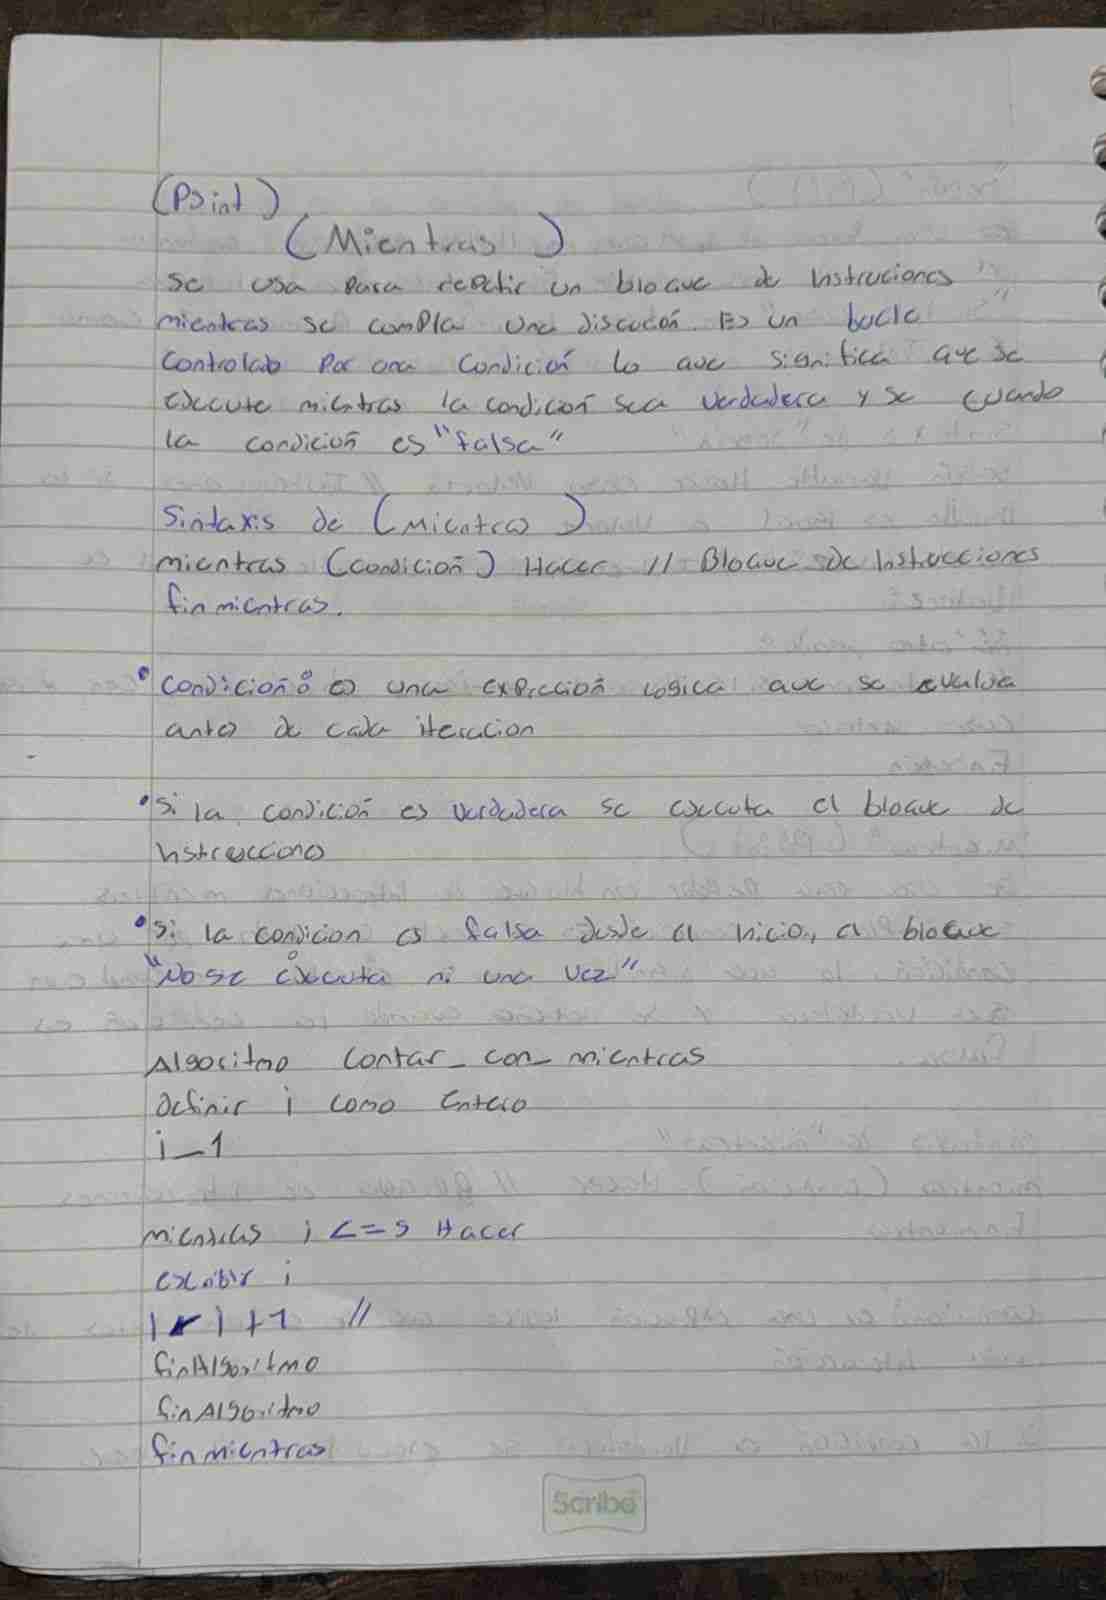 (PSint)
(Mientras)
se usa para repetir un bloque de Instruciones
mientras se compla una discucón. Es un bucle
controlado Por una condición lo que significa que se
execute mientras la condición sea verdadera y se cuando
la condición es "falsa"
Sintaxis de (Mientras)
mientras (condición) Hacer // Bloque de Instrucciones
finmientras.
• condición: es una expreción logica que se evalúa
antes de cada iteracion
• Si la condición es verdadera se executa el bloque de
Instrucciones
• Si la condicion es falsa desde el inicio, el bloque
"No se executa ni una vez"
Algoritmo Contar_con_mientras
definir i como Entero
i_1
mientras i <=5 Hacer
escribir i
i ← i +1 //
finAlgoritmo
finAlgoritmo
finmientras
Scribe